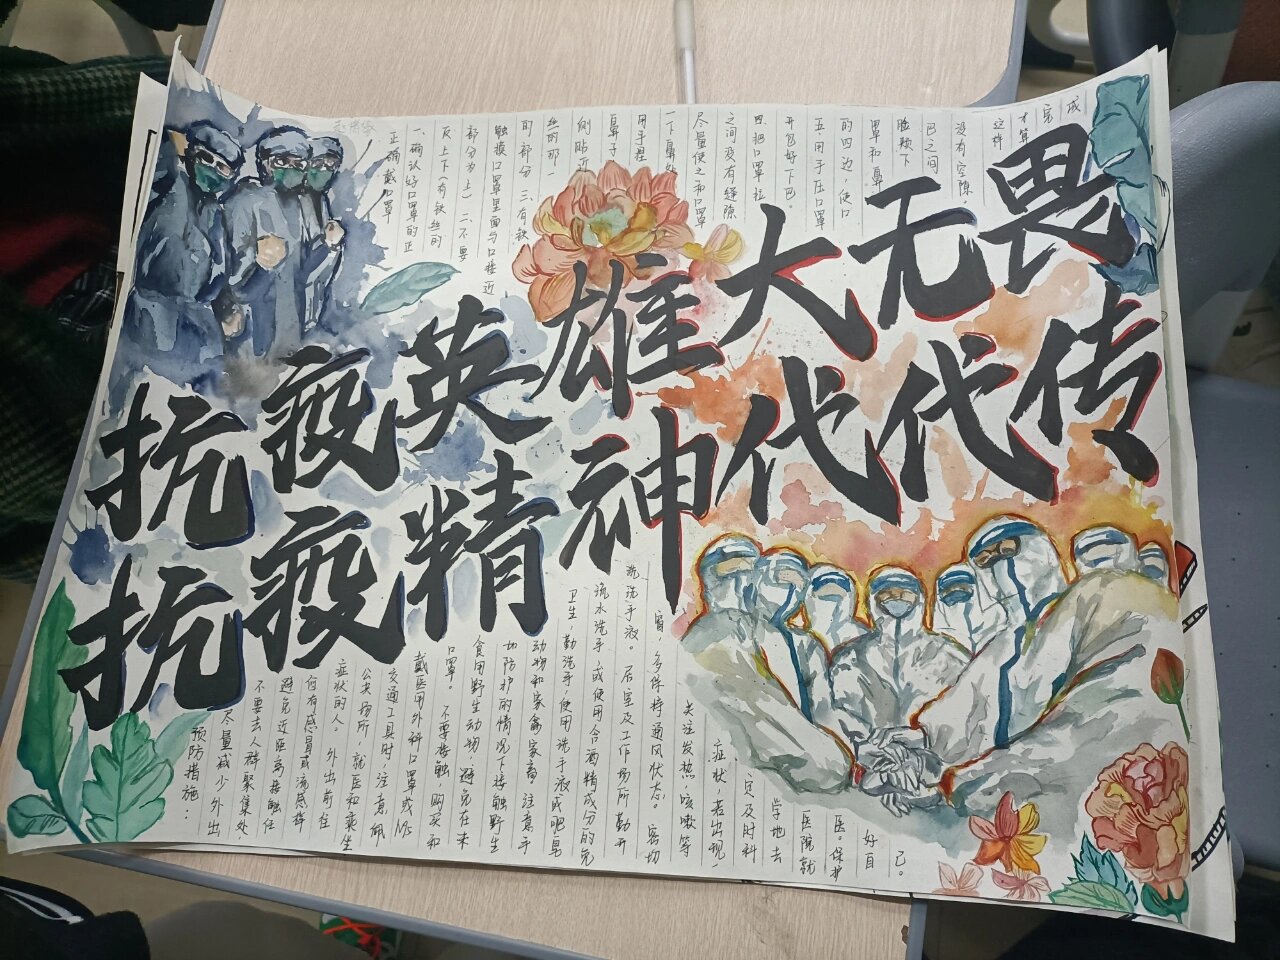 抗疫英雄大无畏
抗疫精神代代传
正确戴口罩
一、确认好口罩的正
反上下有铁丝的
部分为上）二、不要
触摸口罩里面与口接近
的部分 三、有铁
丝的那一
侧贴近
鼻子
用手捏
一下鼻
尽量使之和口罩
之间没有缝隙
四.把口罩拉
开包好下巴。
五.用手在口罩
的四边，使口
罩和鼻
脸颊下
巴之间
没有空隙，
这样
才算
完
成
预防措施：
尽量减少外出
不要去人群聚集处
避免近距离接触任
何有感冒或流感样
症状的人。外出前往
公共场所 就医和乘坐
交通工具时，注意佩
戴医用外科口罩或N95
口罩。 不要接触，购买和
食用野生动物，避免在未
加防护的情况下接触野生
动物和家禽家畜。注意手
卫生，勤洗手，使用洗手液或肥皂
流水洗手，或使用含酒精成分的免
洗洗手液。居室及工作场所 勤开
窗，多保持通风状态。 密切
关注发热 咳嗽等
症状，若出现，
一定及时科
学地去
医院就
医。保护
好自
己。